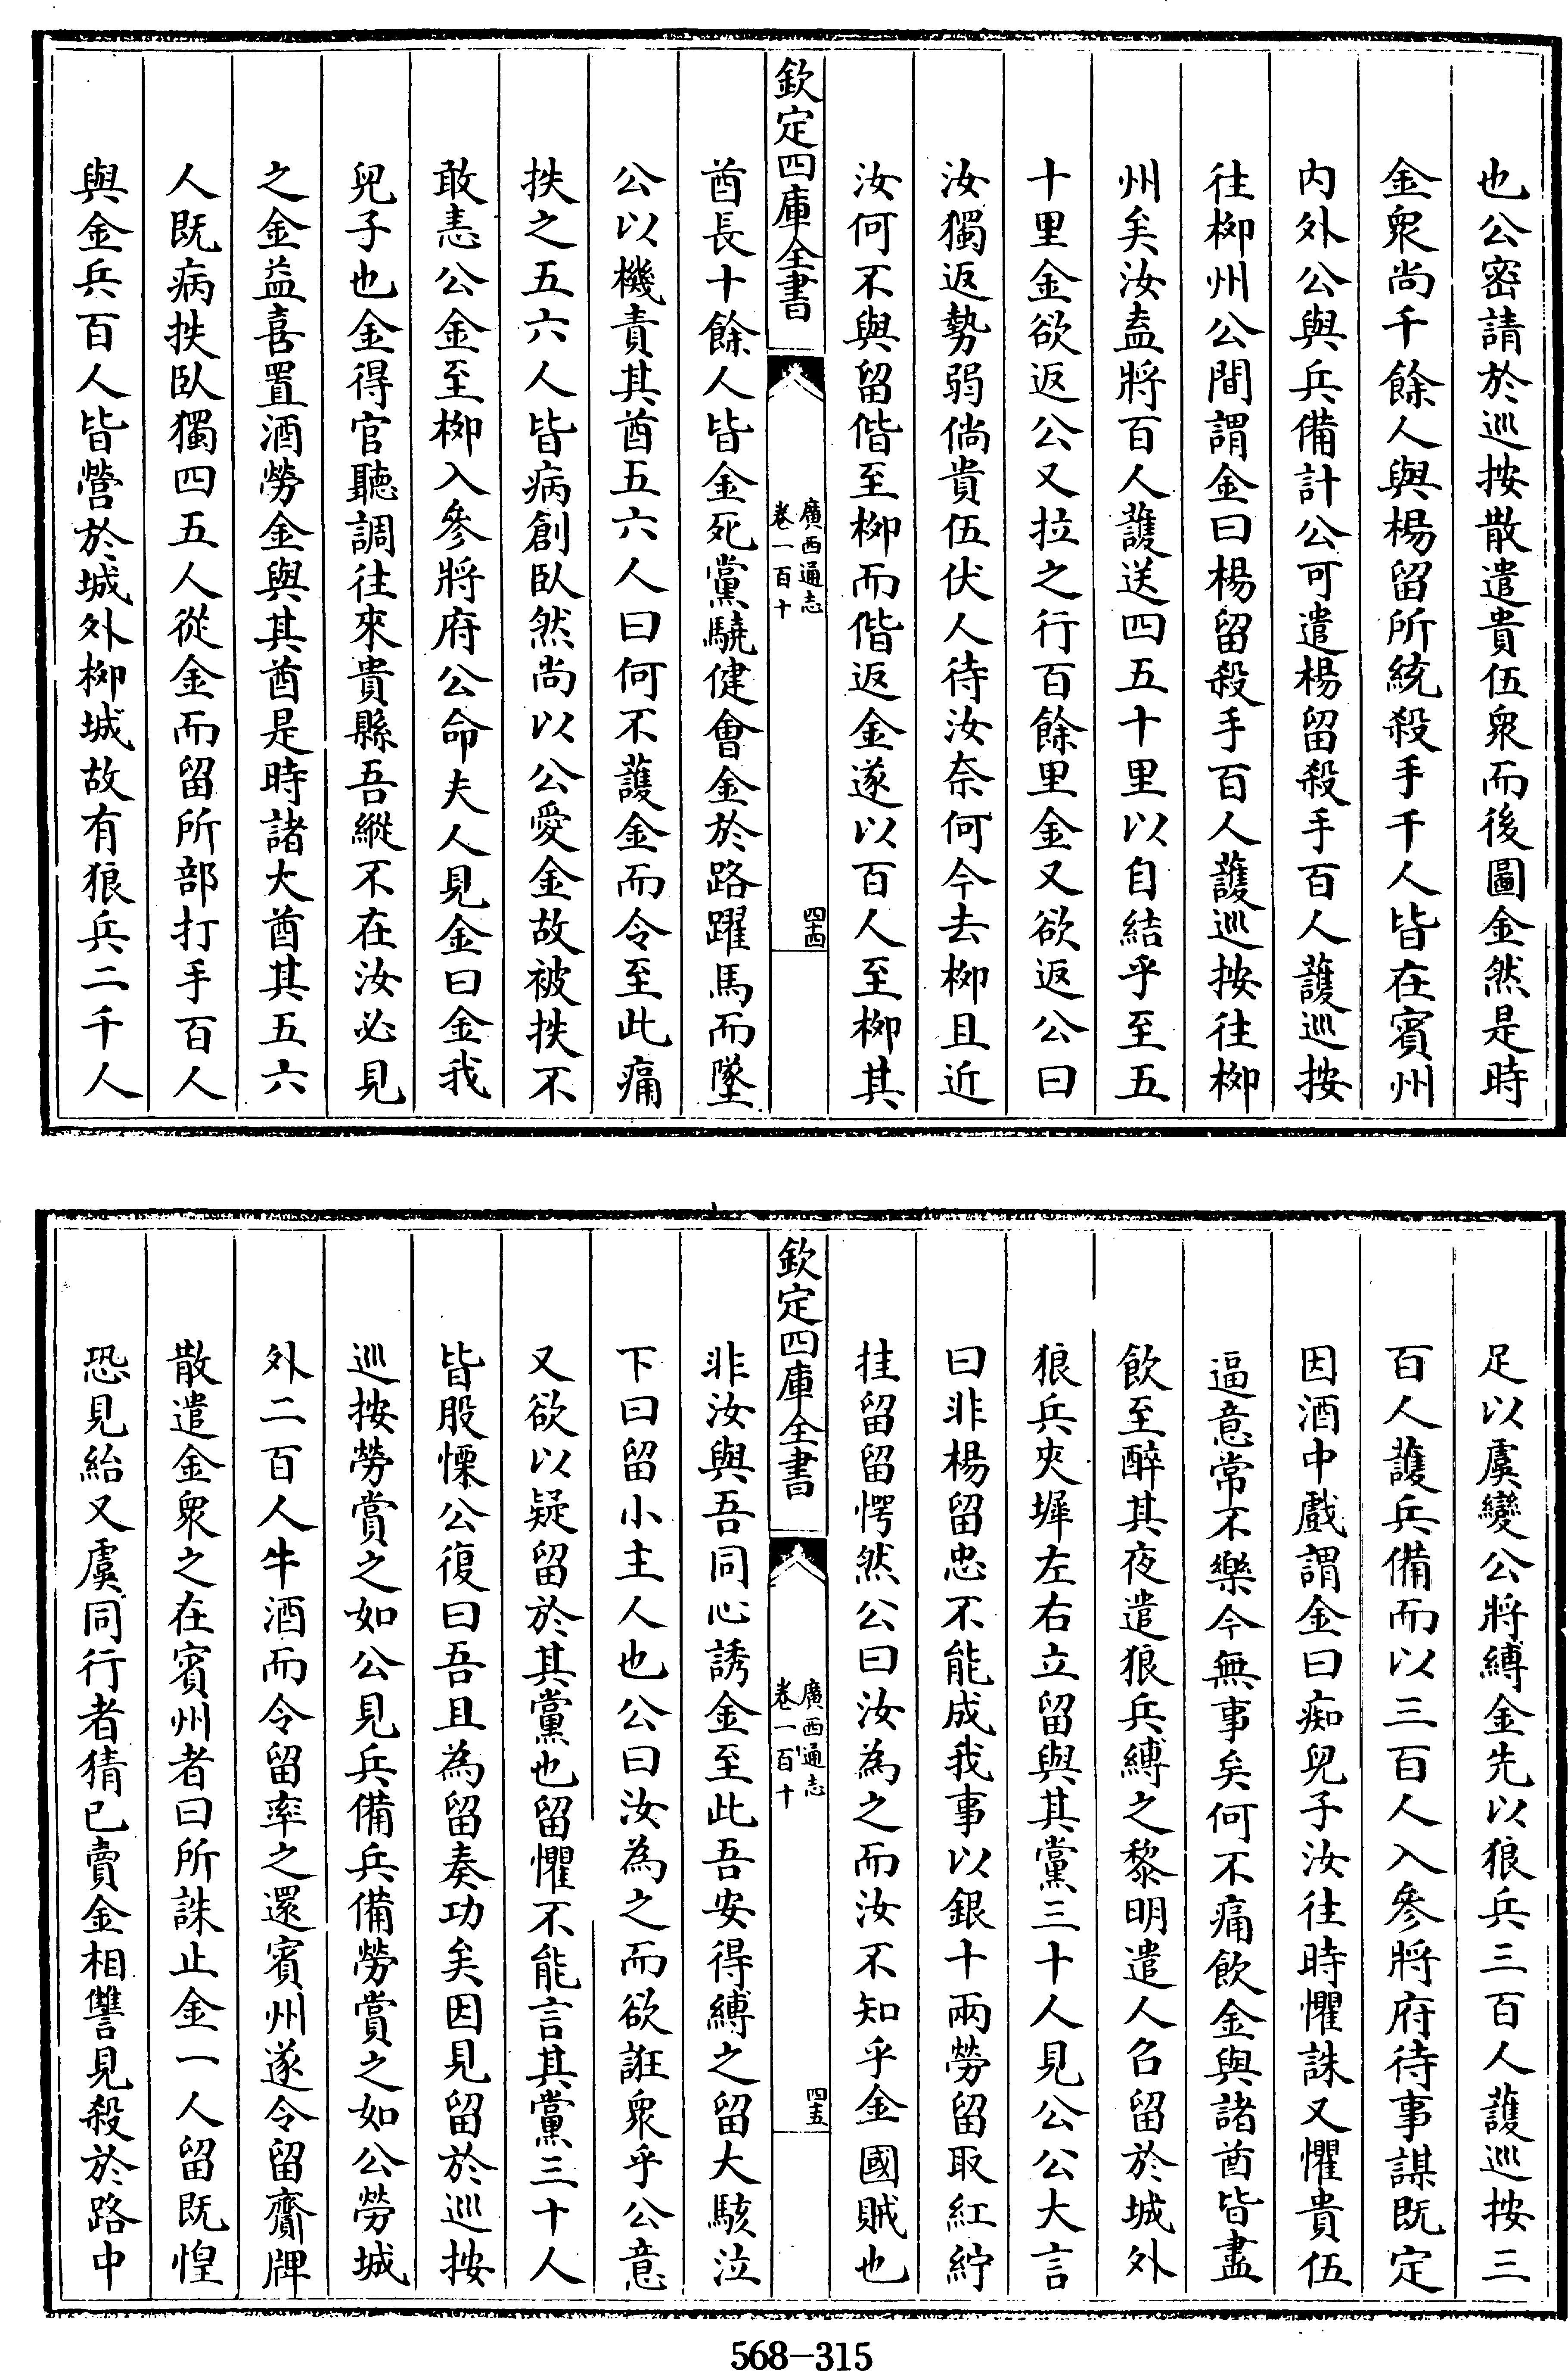 也公密請於巡按散遣貴伍衆而後圖金然是時
金衆尚千餘人與楊留所統殺手千人皆在賓州
内外公與兵備計公可遣楊留殺手百人護巡按
往栁州公間謂金曰楊留殺手百人護巡按往栁
州矣汝盍將百人護送四五十里以自結乎至五
十里金欲返公又拉之行百餘里金又欲返公曰
汝獨返勢弱倘貴伍伏人待汝奈何今去栁且近
汝何不與留偕至栁而偕返金遂以百人至栁其
欽定四庫全書
廣西通志
卷一百十
四十四
酋長十餘人皆金死黨驍健會金於路躍馬而墜
公以機責其酋五六人曰何不護金而令至此痛
抶之五六人皆病創臥然尚以公愛金故被抶不
敢恚公金至栁入參將府公命夫人見金曰金我
兒子也金得官聽調往來貴縣吾縱不在汝必見
之金益喜置酒勞金與其酋是時諸大酋其五六
人既病抶臥獨四五人從金而留所部打手百人
與金兵百人皆營於城外栁城故有狼兵二千人
足以虞變公將縛金先以狼兵三百人護巡按三
百人護兵備而以三百人入參將府待事謀既定
因酒中戲謂金曰痴兒子汝往時懼誅又懼貴伍
逼意常不樂今無事矣何不痛飲金與諸酋皆盡
飲至醉其夜遣狼兵縛之黎明遣人召留於城外
狼兵夾墀左右立留與其黨三十人見公公大言
曰非楊留忠不能成我事以銀十兩勞留取紅紵
挂留留愕然公曰汝為之而汝不知乎金國賊也
欽定四庫全書
廣西通志
卷一百十
四十五
非汝與吾同心誘金至此吾安得縛之留大駭泣
下曰留小主人也公曰汝為之而欲誑衆乎公意
又欲以疑留於其黨也留懼不能言其黨三十人
皆股慄公復曰吾且為留奏功矣因見留於巡按
巡按勞賞之如公見兵備兵備勞賞之如公勞城
外二百人牛酒而令留率之還賓州遂令留齎牌
散遣金衆之在賓州者曰所誅止金一人留既惶
恐見紿又虞同行者猜已賣金相讐見殺於路中
568-315